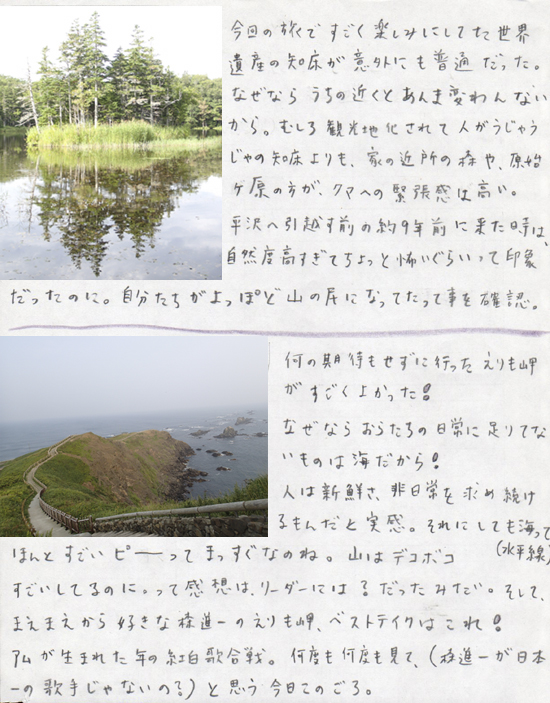 今回の旅ですごく楽しみにしてた世界
遺産の知床が意外にも普通だった。
なぜならうちの近くとあんま変わんない
から。むしろ観光地化されて人がうじゃう
じゃの知床よりも、家の近所の森や、原始
ヶ原の方が、クマへの緊張感は高い。
平沢へ引越す前の約9年前に来た時は、
自然度高すぎてちょっと怖いぐらいって印象
だったのに。自分たちがよっぽど山の民になってたって事を確認。
何の期待もせずに行ったえりも岬
がすごくよかった!
なぜならおらたちの日常に足りてな
いものは海だから!
人は新鮮さ、非日常を求め続け
るもんだと実感。それにしても海って
(水平線)
ほんとすごいピーーってまっすぐなのね。山はデコボコ
すごいしてるのに。って感想は、リーダーには?だったみたい。そして、
まえまえから好きな森進一のえりも岬、ベストテイクはこれ!
アムが生まれた年の紅白歌合戦。何度も何度も見て、(森進一が日本
一の歌手じゃないの?)と思う今日このごろ。